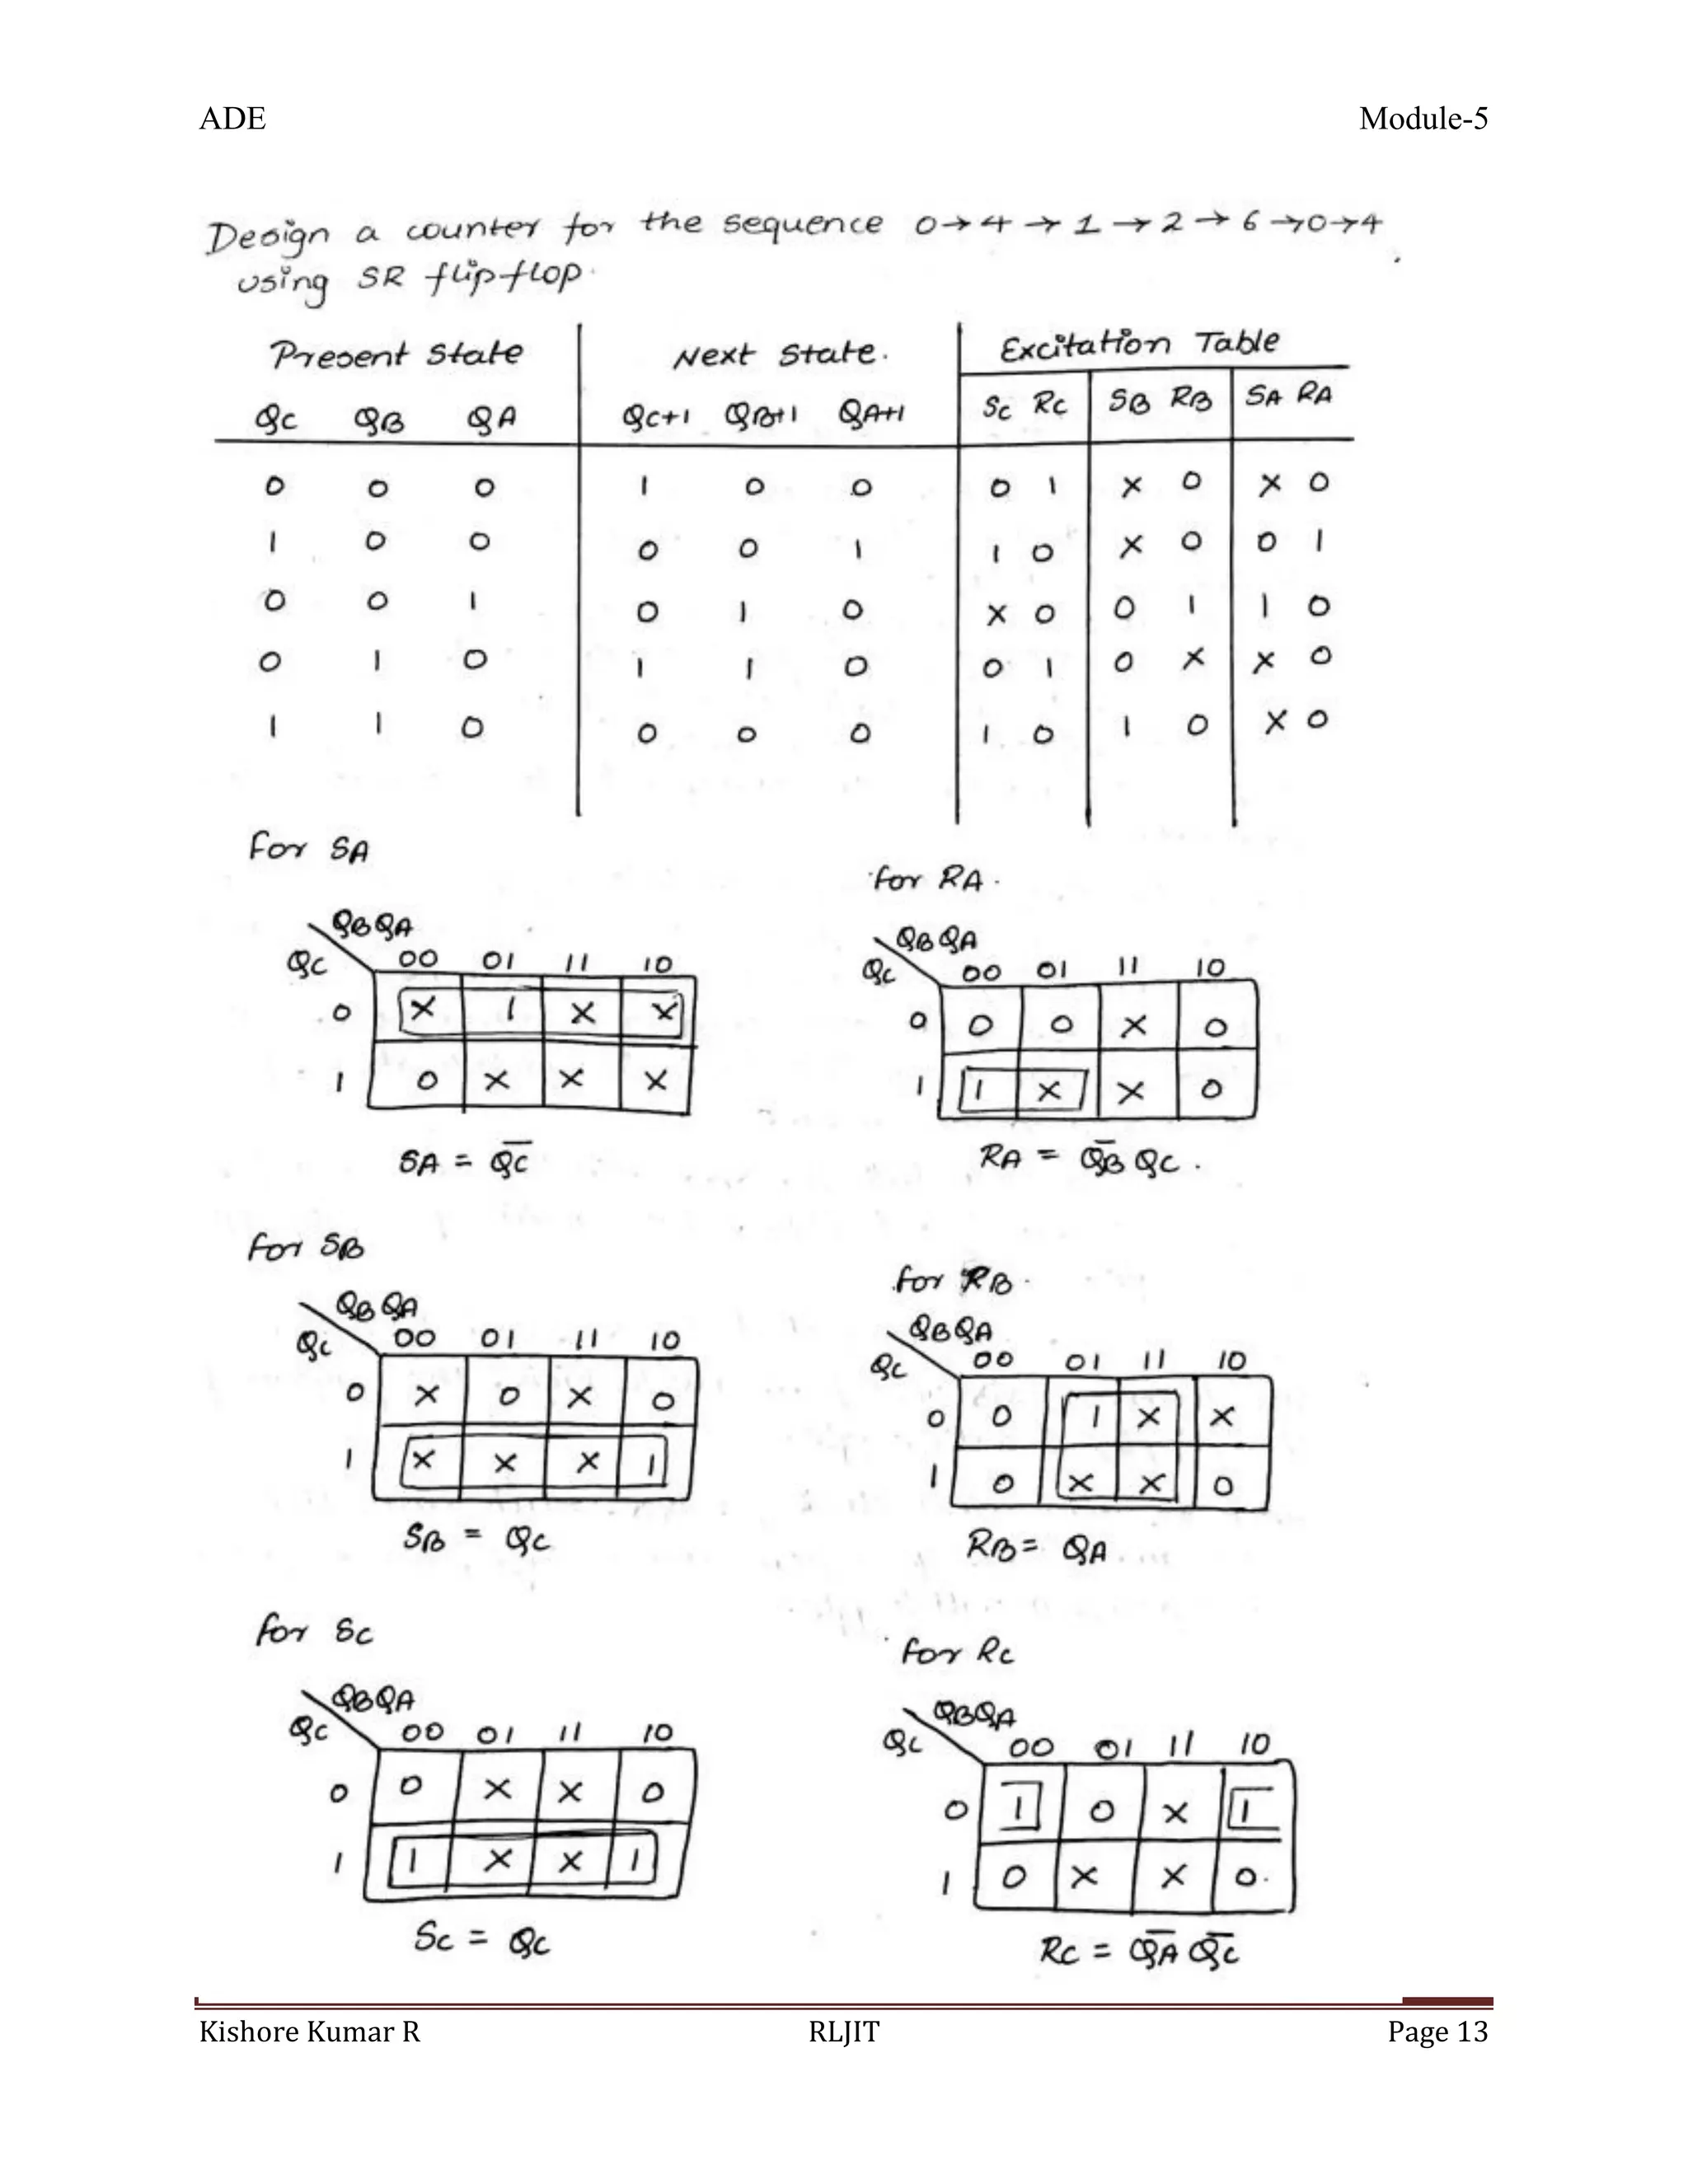 ADE Module-5
Design a counter for the sequence 0→4→1→2→6→0→4
using SR flipflop.
Present State Next State. Excitation Table
QC QB QA QC+1 QB+1 QA+1 SC RC SB RB SA RA
0 0 0 1 0 0 0 1 X 0 X 0
1 0 0 0 0 1 1 0 X 0 0 1
0 0 1 0 1 0 X 0 0 1 1 0
0 1 0 1 1 0 0 1 0 X X 0
1 1 0 0 0 0 1 0 1 0 X 0
For SA
QBQA
QC 00 01 11 10
0 X 1 X X
1 0 X X X
SA = Q̅C̅
for RA.
QBQA
QC 00 01 11 10
0 0 0 X 0
1 1 X X 0
RA = Q̅B̅ QC.
For SB
QBQA
QC 00 01 11 10
0 X 0 X 0
1 X X X 1
SB = QC
for RB.
QBQA
QC 00 01 11 10
0 0 1 X X
1 0 X X 0
RB = QA
For SC
QBQA
QC 00 01 11 10
0 0 X X 0
1 1 X X 1
SC = QC
For RC
QBQA
QC 00 01 11 10
0 1 0 X 1
1 0 X X 0.
RC = Q̅A̅ Q̅C̅
Kishore Kumar R RLJIT Page 13